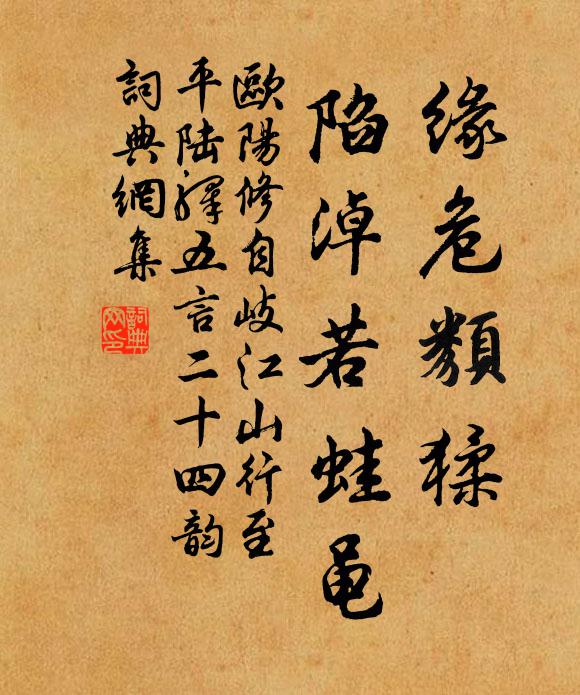 缘危類猱
陷淖若蛙黽
歐陽修自歧江山行至
平陆驛五言二十四韵
詞典網集
詞典網印